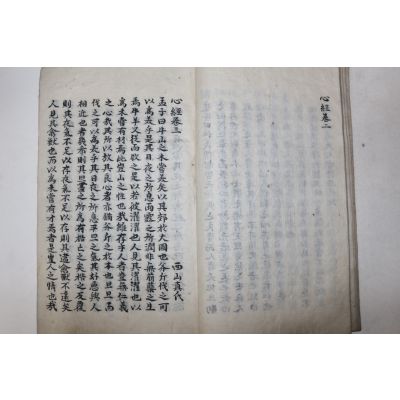 心經卷二
心經卷三
西山真氏
孟子曰牛山之木嘗美矣以其郊於大國也斧斤伐之可
以為美乎是其日夜之所息雨露之所潤非無萌蘖之生
焉牛羊又從而牧之是以若彼濯濯也人見其濯濯也以
為未嘗有材焉此豈山之性也哉雖存乎人者豈無仁義
之心哉其所以放其良心者亦猶斧斤之於木也旦旦而
伐之可以為美乎其日夜之所息平旦之氣其好惡與人
相近也者幾希則其旦晝之所為有梏亡之矣梏之反覆
則其夜氣不足以存夜氣不足以存則其違禽獸不遠矣
人見其禽獸也而以為未嘗有才焉者是豈人之情也哉